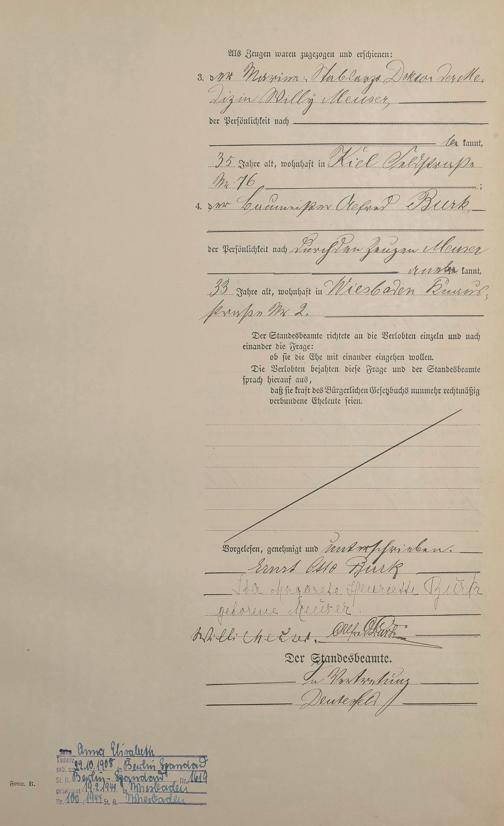 Als Zeugen waren zugezogen und erschienen:
3. der Marine-Stabsarzt, Doktor der Me-
dizin Willy Meuser,
der Persönlichkeit nach
be kannt,
35 Jahre alt, wohnhaft in Kiel Feldstraße
Nr 76 ;
4. der Baumeister Alfred Burk
der Persönlichkeit nach durch den Zeugen Meuser
aner kannt,
33 Jahre alt, wohnhaft in Wiesbaden
straße Nr 2.
Der Standesbeamte richtete an die Verlobten einzeln und nach
einander die Frage:
ob sie die Ehe mit einander eingehen wollen.
Die Verlobten bejahten diese Frage und der Standesbeamte
sprach hierauf aus,
daß sie kraft des Bürgerlichen Gesetzbuchs nunmehr rechtmäßig
verbundene Eheleute seien.
Vorgelesen, genehmigt und unterschrieben.
Ernst Otto Burk
Burk
geborene Meuser.
Willi Meuser. Alfred Burk
Der Standesbeamte.
In Vertretung
Anna Elisabeth
29.10.1908 Berlin Spandau
St. A. Berlin-Spandau Nr. 1619
19.2.1944 Wiesbaden
Nr. 100/1944 St. A. Wiesbaden
Form. B.